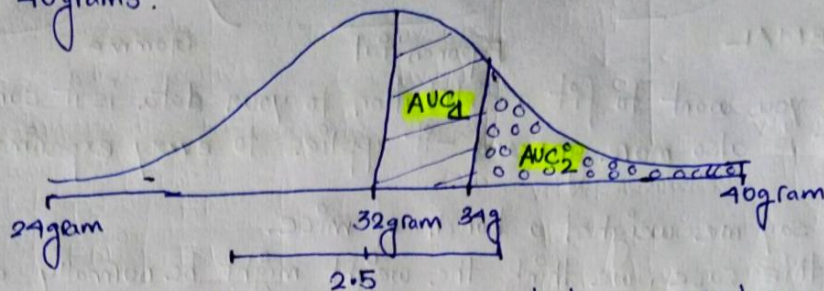 40grams.
AUC1
AUC2
24gram 32gram 34g 40gram
2.5